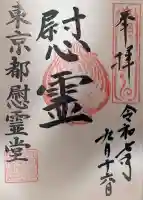 奉拝
令和七年
九月十六日
慰霊
東京都慰霊堂